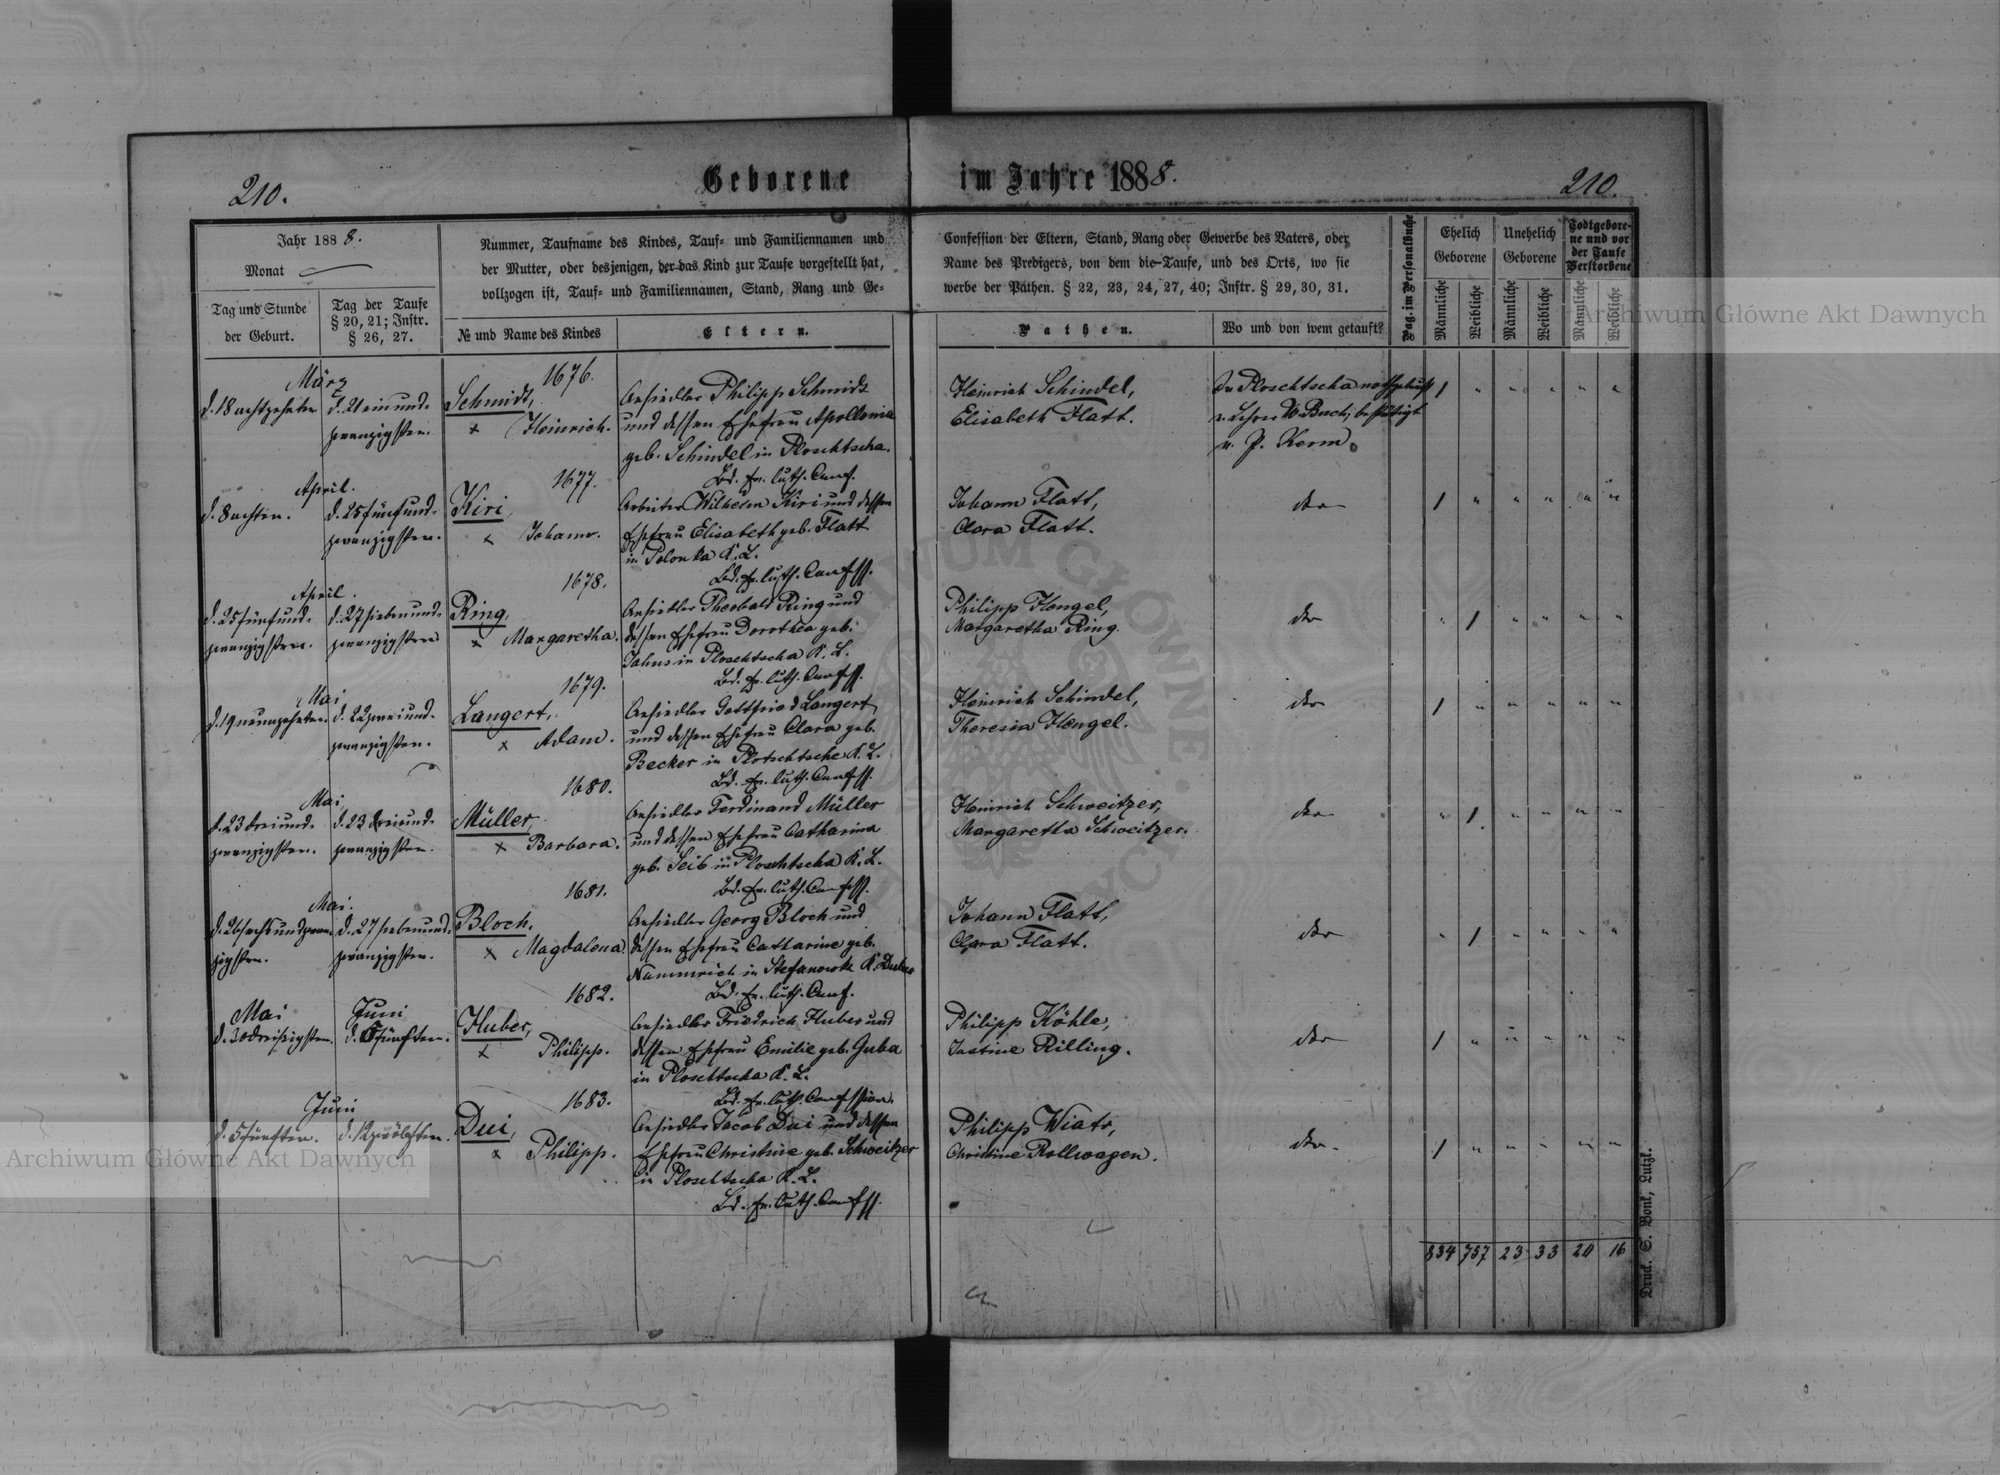 210.
Geborene im Jahre 1888.
210.
Jahr 1888.
Monat
Tag und Stunde
der Geburt.
Tag der Taufe
§ 20, 21; Instr.
§ 26, 27.
Nummer, Taufname des Kindes, Tauf- und Familiennamen und
der Mutter, oder desjenigen, der das Kind zur Taufe vorgestellt hat,
vollzogen ist, Tauf- und Familiennamen, Stand, Rang und Ge-
№ und Name des Kindes
Eltern.
Confession der Eltern, Stand, Rang oder Gewerbe des Vaters, oder
Name des Predigers, von dem die Taufe, und des Orts, wo sie
werbe der Pathen. § 22, 23, 24, 27, 40; Instr. § 29, 30, 31.
Pathen.
Wo und von wem getauft?
Pag. im Personalbuche
Ehelich
Geborene
Unehelich
Geborene
Todtgebore-
ne und vor
der Taufe
Verstorbene
Männliche
Weibliche
Männliche
Weibliche
Männliche
Weibliche
März
d. 18 achtzehnten
d. 21 einund-
zwanzigsten.
1676.
Schmidt,
x Heinrich.
Ansiedler Philipp Schmidt
und dessen Ehefrau Apollonia
geb. Schindel in Ploschtscha.
Bd. ev. luth. Conf.
Heinrich Schindel,
Elisabeth Flatt.
In Ploschtscha nothgetauft
v. W. Buch, bestätigt
v. P. Kerm.
1 " " " " "
April.
d. 8 achten.
d. 25 fünfund-
zwanzigsten.
1677.
Kiri,
x Johann.
Arbeiter Wilhelm Kiri und dessen
Ehefrau Elisabeth geb. Flatt
in Polonka K. L.
Bd. ev. luth. Confess.
Johann Flatt,
Clara Flatt.
dto
1 " " " " "
April.
d. 25 fünfund-
zwanzigsten.
d. 27 siebenund-
zwanzigsten
1678.
Ring,
x Margaretha.
Ansiedler Theobald Ring und
dessen Ehefrau Dorothea geb.
Jahns in Ploschtscha K. L.
Bd. ev. luth. Confess.
Philipp Hengel,
Margaretha Ring.
dto
" 1 " " " "
Mai
d. 19 neunzehnten.
d. 22 zweiund-
zwanzigsten.
1679.
Langert,
x Adam.
Ansiedler Gottfried Langert
und dessen Ehefrau Clara geb.
Becker in Plotschtsche K. L.
Bd. ev. luth. Confess.
Heinrich Schindel,
Theresia Hengel.
dto
1 " " " " "
Mai
d. 23 dreiund-
zwanzigsten.
d. 23 dreiund-
zwanzigsten.
1680.
Müller,
x Barbara.
Ansiedler Ferdinand Müller
und dessen Ehefrau Catharina
geb. Seib in Ploschtscha K. L.
Bd. ev. luth. Confess.
Heinrich Schweitzer,
Margaretha Schweitzer.
dto
" 1. " " " "
Mai.
d. 26 sechsundzwan-
zigsten.
d. 27 siebenund-
zwanzigsten.
1681.
Bloch,
x Magdalena.
Ansiedler Georg Bloch und
dessen Ehefrau Catharine geb.
Nammrich in Stefanowk K. Dubno
Bd. ev. luth. Conf.
Johann Flatt,
Clara Flatt.
dto
" 1 " " " "
Mai
d. 30 dreißigsten.
Juni
d. 5 fünften.
1682.
Huber,
x Philipp.
Ansiedler Friedrich Huber und
dessen Ehefrau Emilie geb. Guba
in Ploschtscha K. L.
Bd. ev. luth. Confession.
Philipp Köhle,
Justine Rilling.
dto
1 " " " " "
Juni
d. 5 fünften.
d. 12 zwölften.
1683.
Dui,
x Philipp.
Ansiedler Jacob Dui und dessen
Ehefrau Christine geb. Schweitzer
in Ploschtscha K. L.
Bd. ev. luth. Confess.
Philipp Wiatr,
Christine Rollwagen.
dto
1 " " " " "
834 757 23 33 20 16
Druck. S. Bonk, Lutzk.
Archiwum Główne Akt Dawnych
Archiwum Główne Akt Dawnych